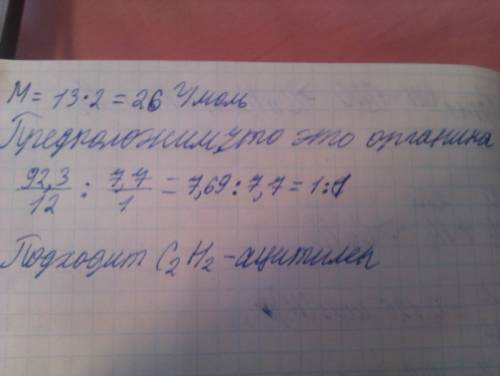 M = 13·2 = 26 г/моль
Предположим, что это органика
92,3/12 : 7,7/1 = 7,69 : 7,7 = 1:1
Подходит C₂H₂ - ацитилен